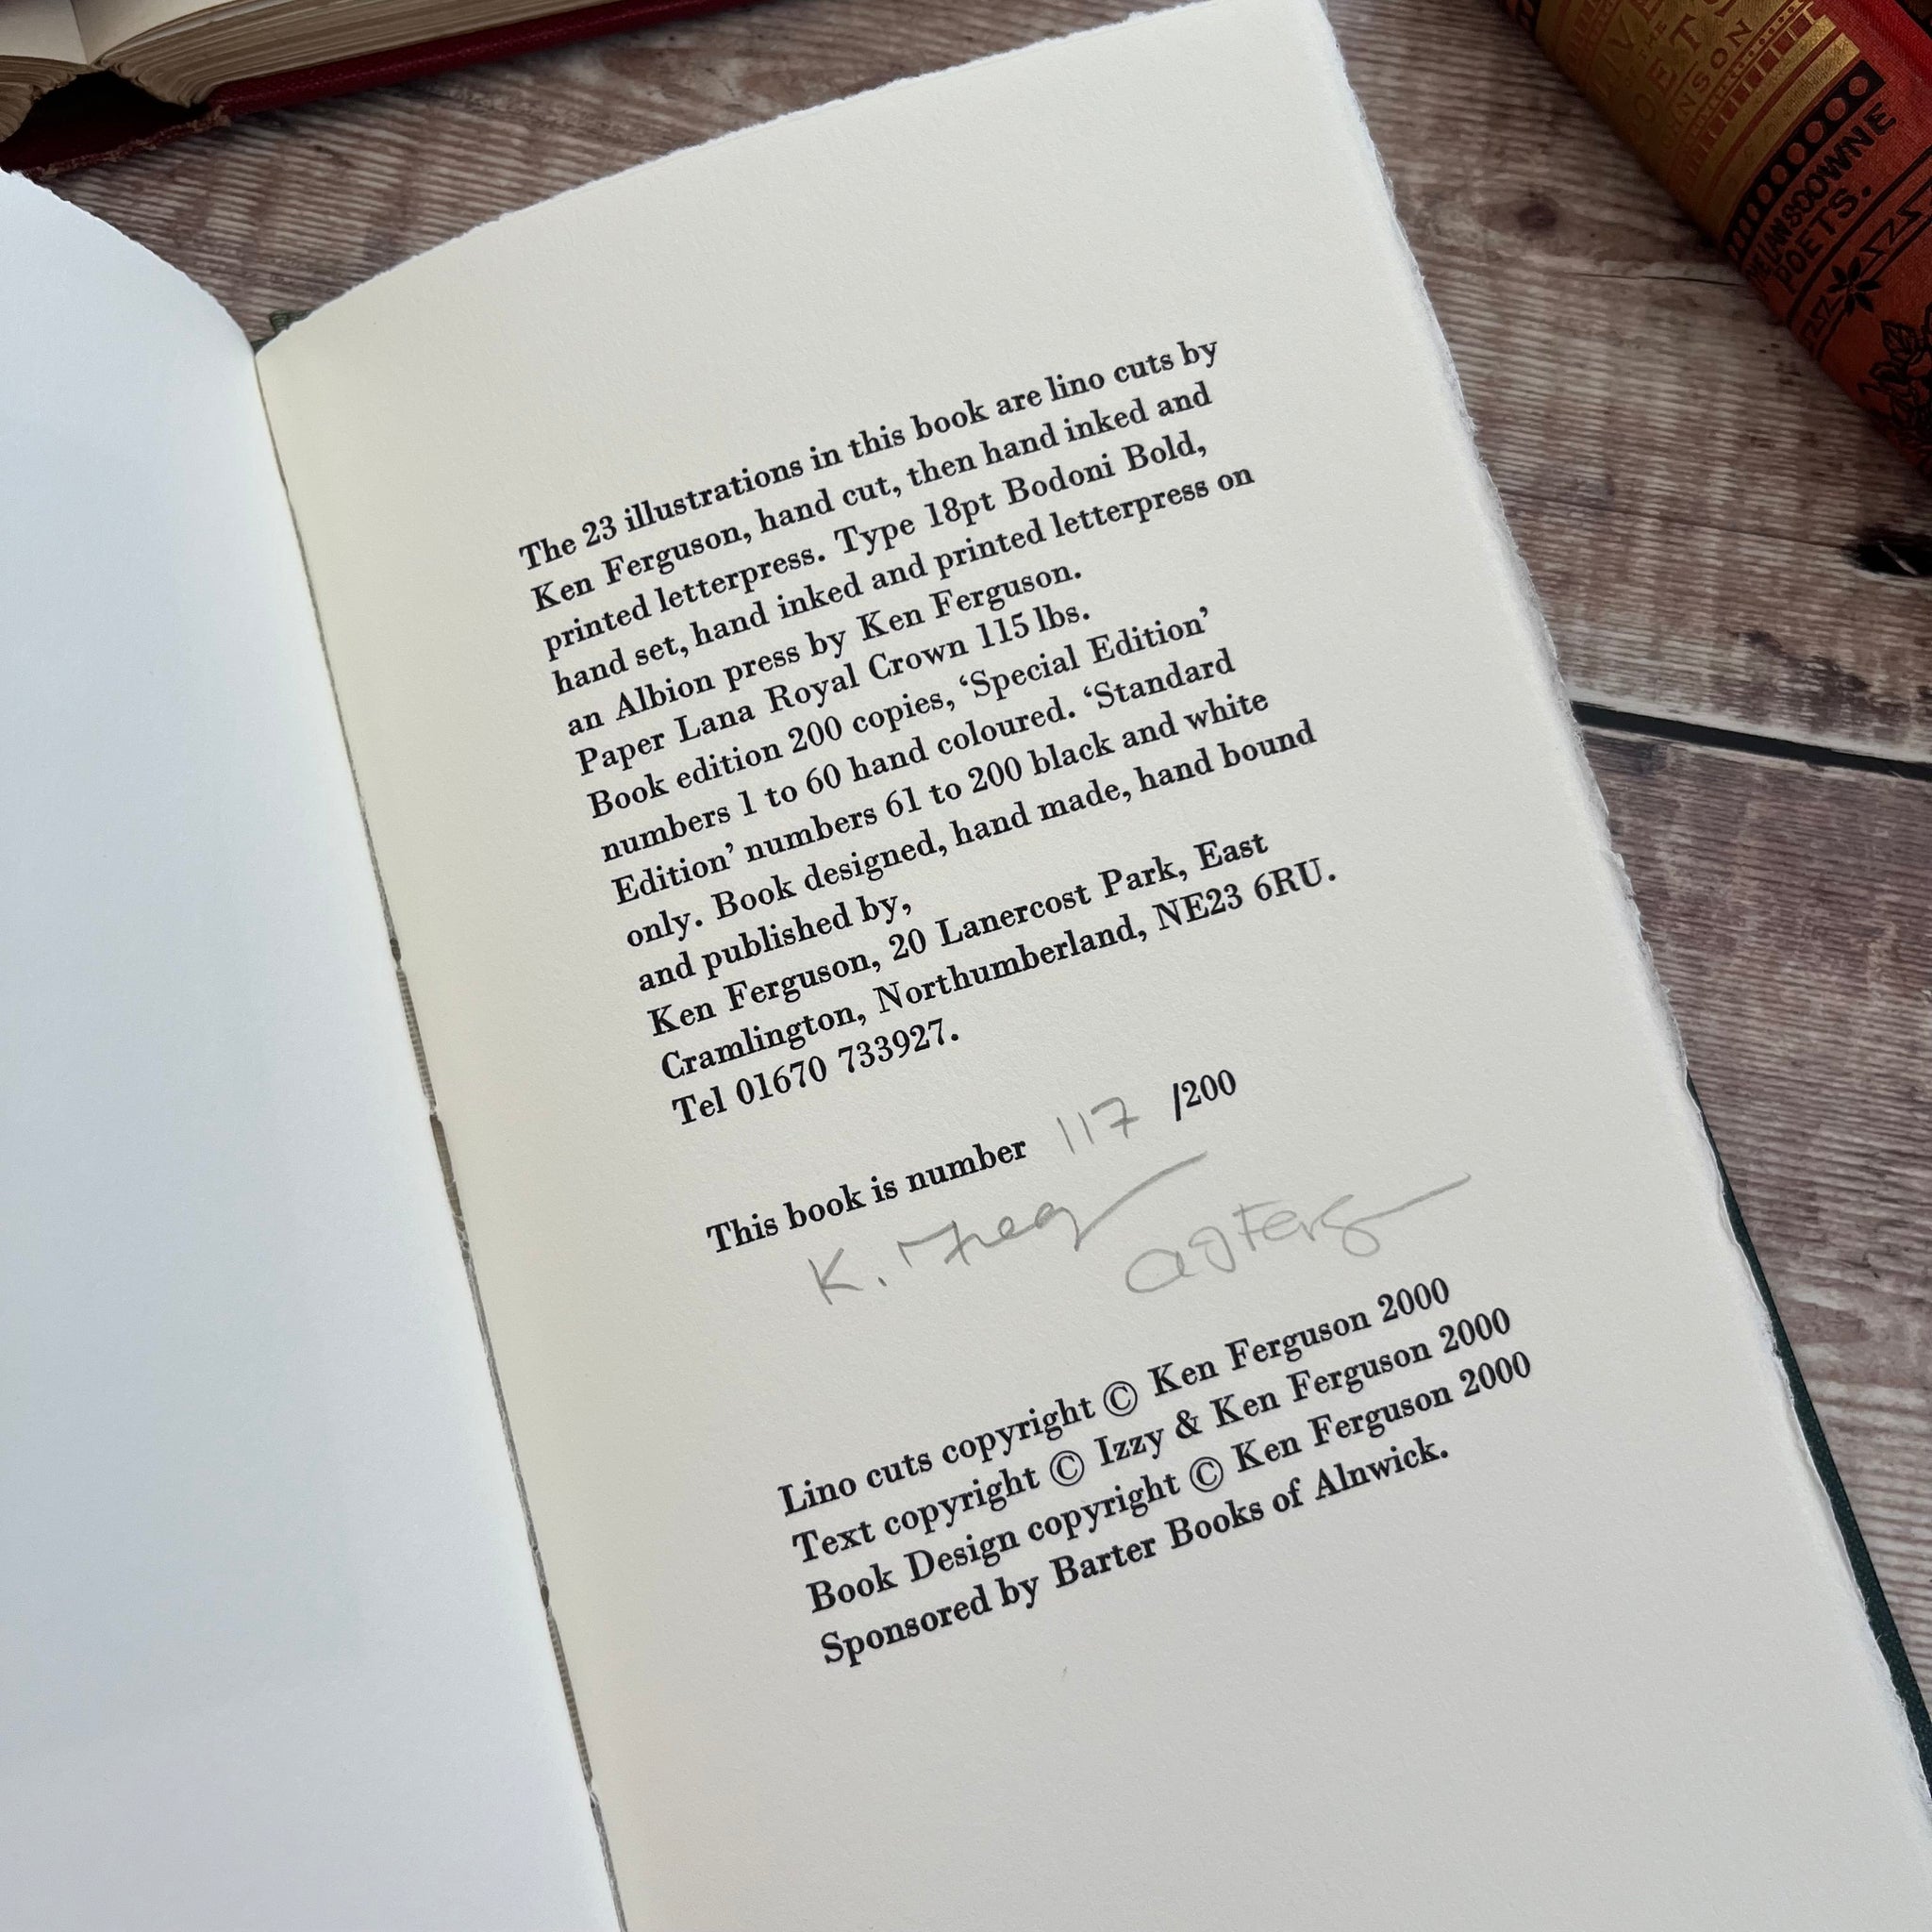 The 23 illustrations in this book are lino cuts by
Ken Ferguson, hand cut, then hand inked and
printed letterpress. Type 18pt Bodoni Bold,
hand set, hand inked and printed letterpress on
an Albion press by Ken Ferguson.
Paper Lana Royal Crown 115 lbs.
Book edition 200 copies, ‘Special Edition’
numbers 1 to 60 hand coloured. ‘Standard
Edition’ numbers 61 to 200 black and white
only. Book designed, hand made, hand bound
and published by,
Ken Ferguson, 20 Lanercost Park, East
Cramlington, Northumberland, NE23 6RU.
Tel 01670 733927.
This book is number 117 /200
K.
Lino cuts copyright © Ken Ferguson 2000
Text copyright © Izzy & Ken Ferguson 2000
Book Design copyright © Ken Ferguson 2000
Sponsored by Barter Books of Alnwick.
LANSDOWNE
POETS.